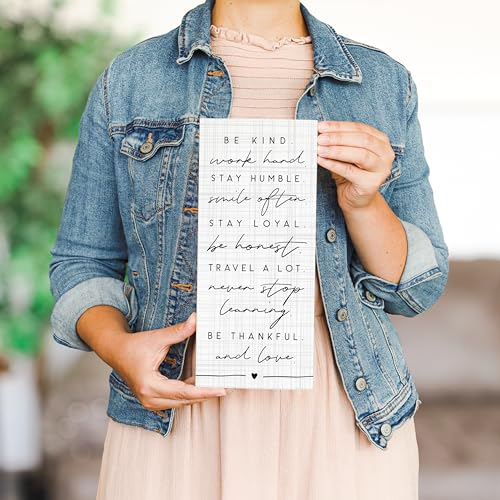 BE KIND.
work hard.
STAY HUMBLE.
smile often
STAY LOYAL.
be honest.
TRAVEL A LOT.
never stop
learning
BE THANKFUL.
and love